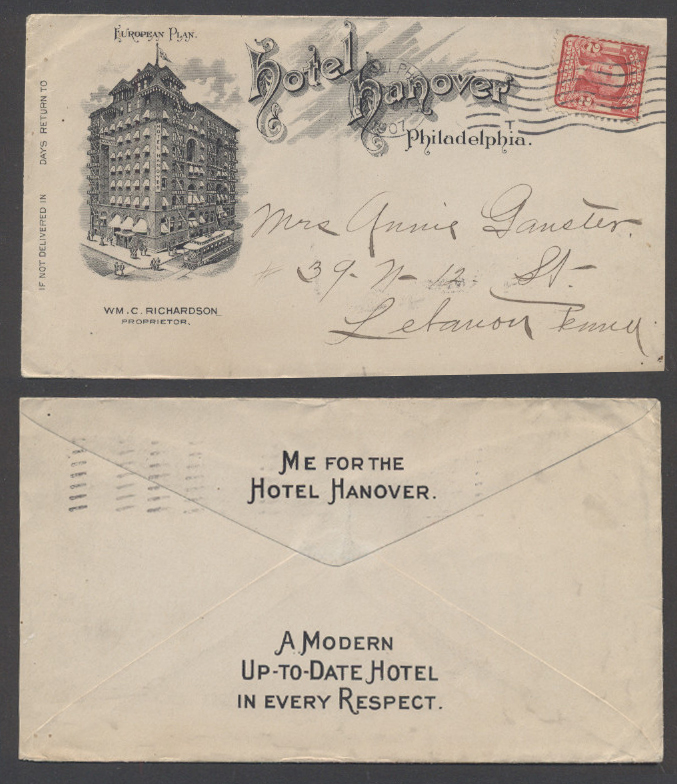 European Plan.
Hotel
Hanover
Philadelphia.
1907
2 2
IF NOT DELIVERED IN DAYS RETURN TO
HOTEL HANOVER
WM. C. RICHARDSON
PROPRIETOR.
Mrs Annie Ganster.
# 39 - N - 12 St-
Lebanon Penna
ME FOR THE
HOTEL HANOVER.
A MODERN
UP-TO-DATE HOTEL
IN EVERY RESPECT.